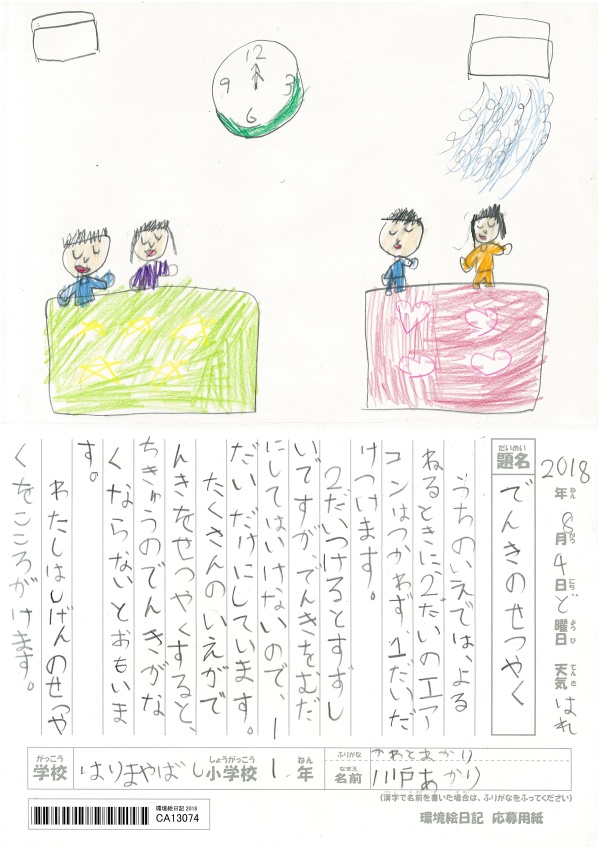 12
9 3
6
2018年8月4日ど曜日 天気はれ
だいめい
題名
でんきのせつやく
うちのいえでは、よる
ねるときに2だいのエア
コンはつかわず1だいだ
けつけます。
2だいつけるとすずし
いですが、でんきをむだ
にしてはいけないので、1
だいだけにしています。
たくさんのいえがで
んきをせつやくすると、
ちきゅうのでんきがな
くならないとおもいま
す。
わたしはしげんのせつや
くをこころがけます。
がっこう しょうがっこう ねん
学校 はりまやばし小学校 1年
ふりがな かわとあかり
なまえ
名前 川戸あかり
(漢字で名前を書いた場合は、ふりがなをふってください)
環境絵日記 2018
CA13074
環境絵日記 応募用紙